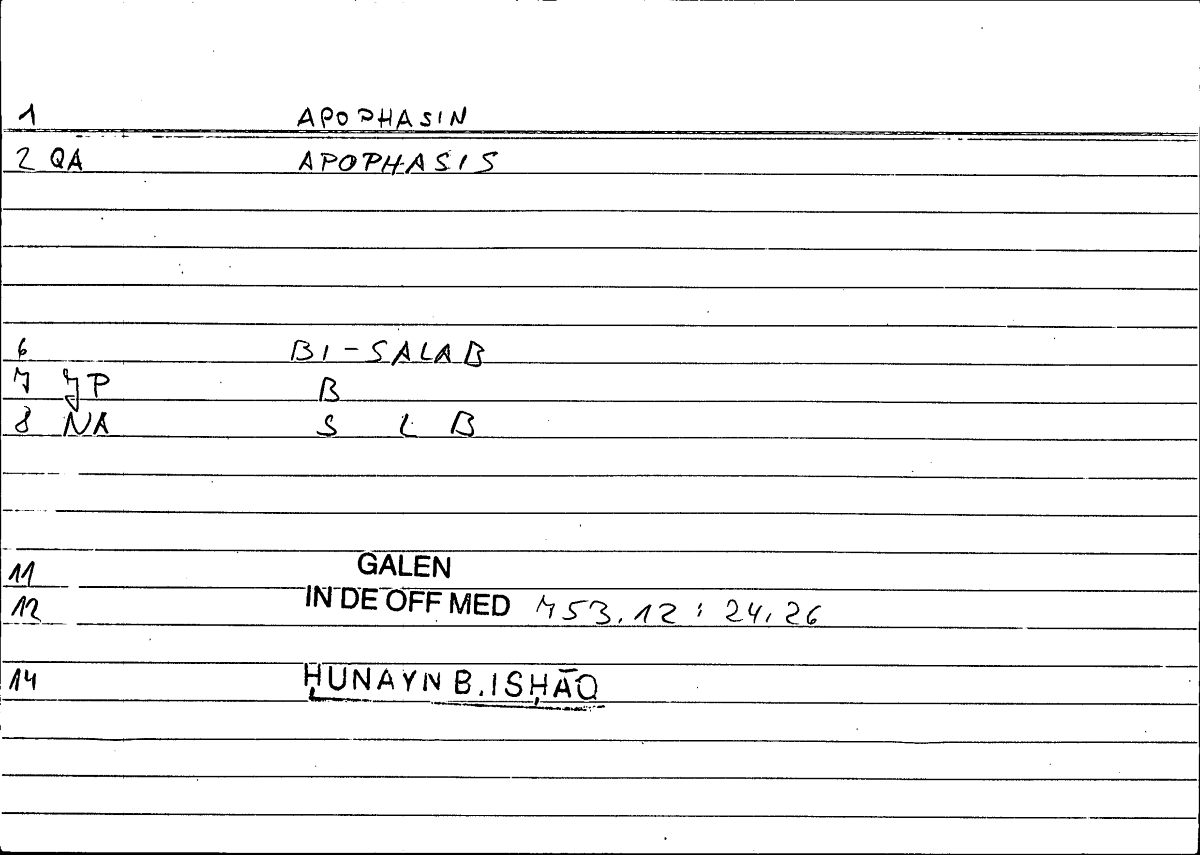 1 APOPHASIN
2 QA APOPHASIS
6 BI-SALAB
7 JP B
8 NA S L B
11 GALEN
12 IN DE OFF MED 753.12 : 24,26
14 ḤUNAYN B. ISḤĀQ